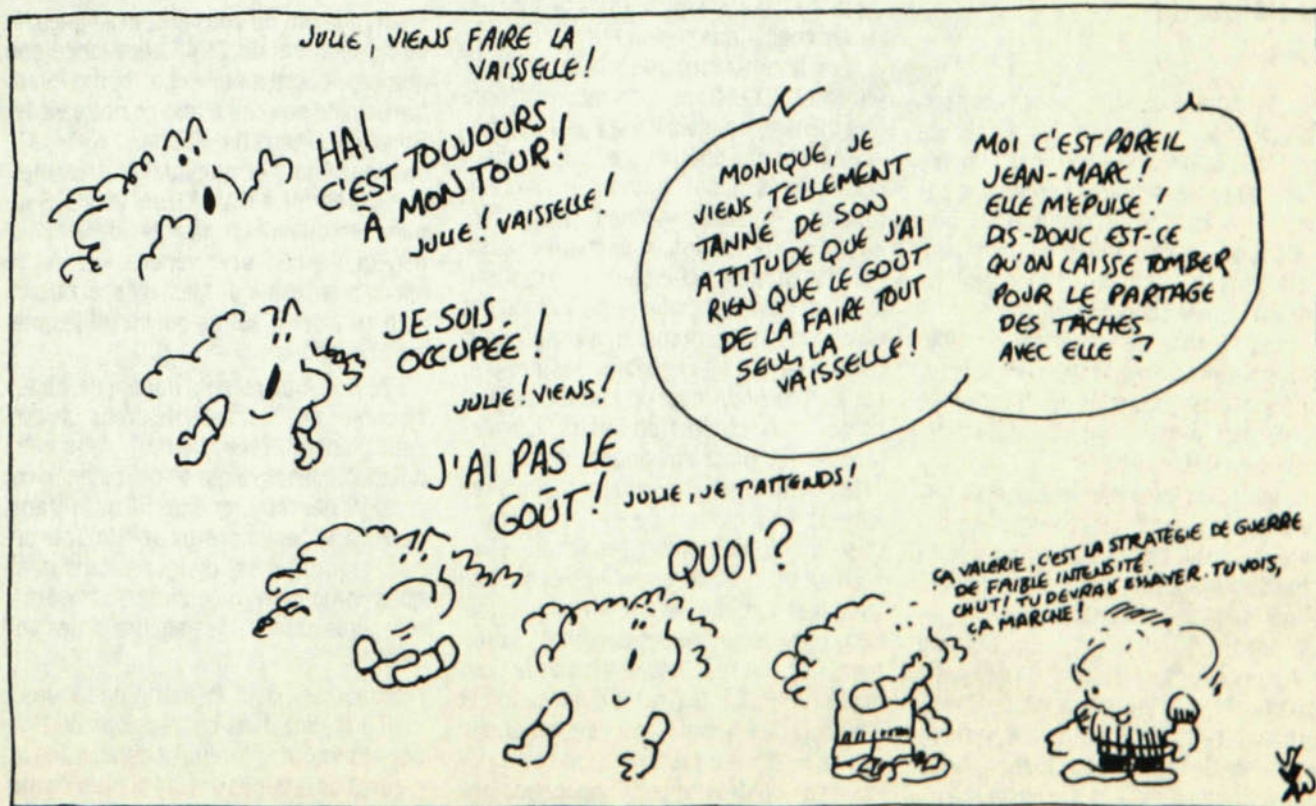 JULIE, VIENS FAIRE LA
VAISSELLE!
HA!
C'EST TOUJOURS
À MON TOUR!
JULIE! VAISSELLE!
JE SUIS
OCCUPÉE!
JULIE! VIENS!
J'AI PAS LE
GOÛT!
JULIE, JE T'ATTENDS!
QUOI?
MONIQUE, JE
VIENS TELLEMENT
TANNÉ DE SON
ATTITUDE QUE J'AI
RIEN QUE LE GOÛT
DE LA FAIRE TOUT
SEUL LA
VAISSELLE!
MOI C'EST PAREIL
JEAN-MARC!
ELLE M'ÉPUISE!
DIS-DONC EST-CE
QU'ON LAISSE TOMBER
POUR LE PARTAGE
DES TÂCHES
AVEC ELLE?
ÇA VALÉRIE, C'EST LA STRATÉGIE DE GUERRE
DE FAIBLE INTENSITÉ.
CHUT! TU DEVRAIS ESSAYER. TU VOIS,
ÇA MARCHE!